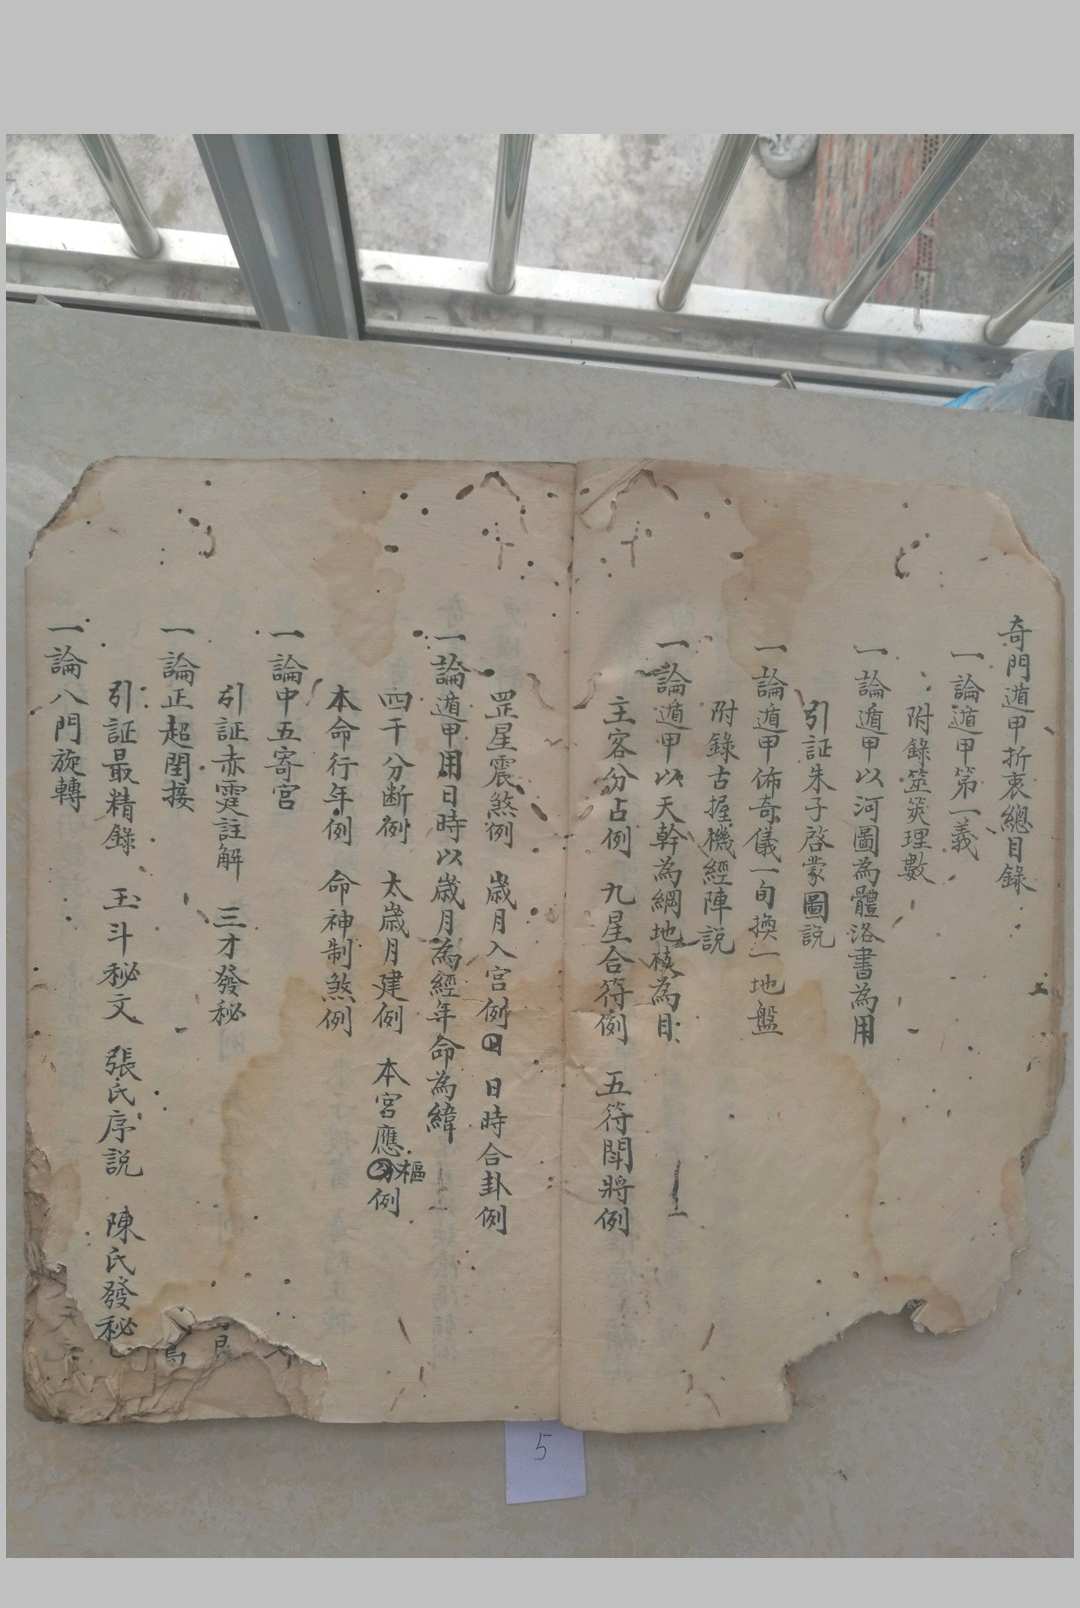 奇門遁甲折衷總目錄
一論遁甲第一義
附錄筮筴理數
一論遁甲以河圖為體洛書為用
引証朱子啓蒙圖説
一論遁甲佈奇儀一旬換一地盤
附錄古握機經陣説
一論遁甲以天幹為綱地枝為目
主客分占例 九星合符例 五符閗將例
罡星震煞例 歲月入宮例 日時合卦例
一論遁甲用日時以歲月為經年命為緯
四干分断例 太歲月建例 本宮應樞例
本命行年例 命神制煞例
一論中五寄宮
引証赤霆註解 三才發秘
一論正超閏接
引証最精錄 玉斗秘文 張氏序説 陳氏發秘
一論八門旋轉
5